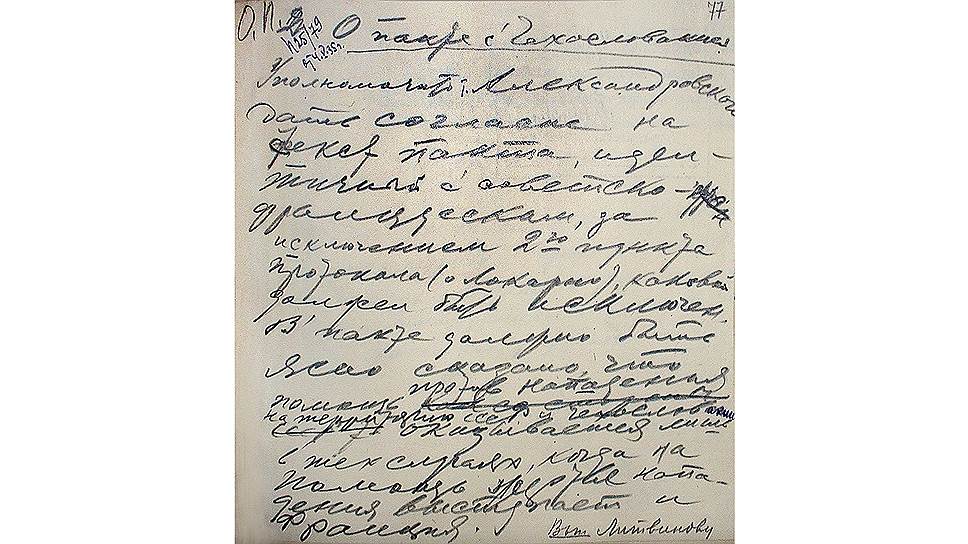 О.П. 77
№25/79
О пакте с Чехословакией
Уполномочить т. Александровского
дать согласие на
текст пакта, иден-
тичный с советско-
французским, за
исключением 2го пункта
протокола (о Локарно), каковой
должен быть исключен.
В пакте должно быть
ясно сказано, что
против нападения
помощь
на территорию СССР и Чехословакии
оказывается лишь
в тех случаях, когда на
помощь жертве напа-
дения выступает и
Франция.
Вып. Литвинову